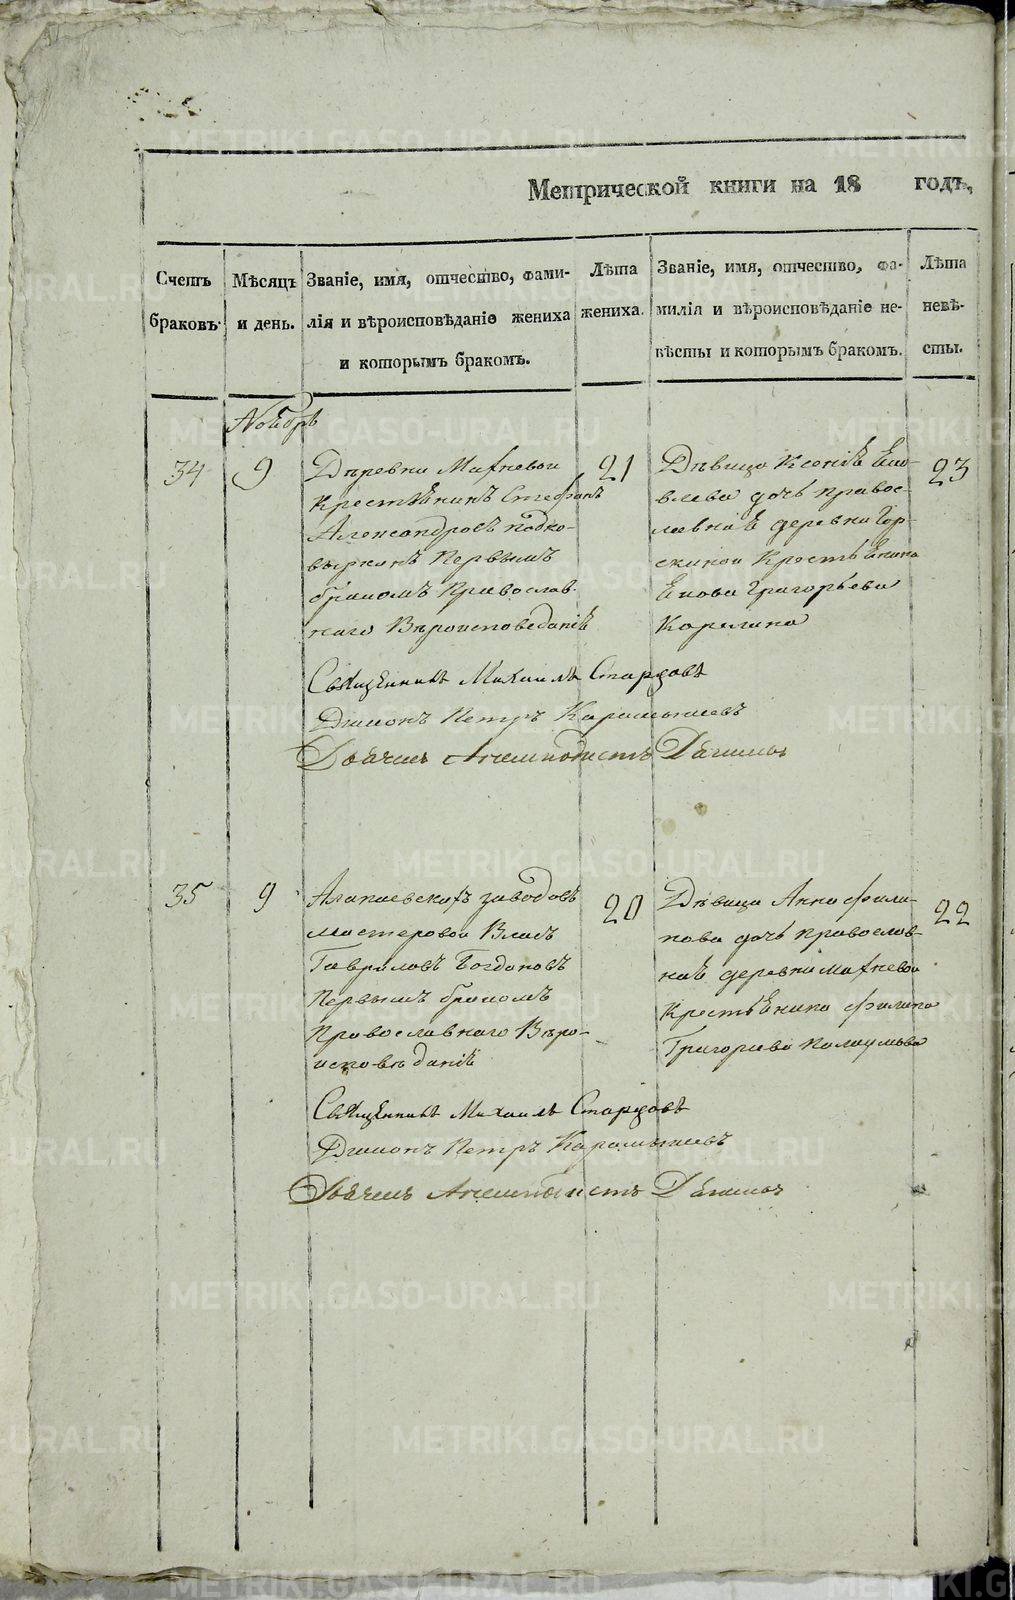 Метрической книги на 18 годъ,
Счетъ браковъ.
Мѣсяцъ и день.
Званіе, имя, отчество, фами-
лія и вѣроисповѣданіе жениха
и которымъ бракомъ.
Лѣта жениха.
Званіе, имя, отчество, фа-
милія и вѣроисповѣданіе не-
вѣсты и которымъ бракомъ.
Лѣта невѣ-
сты.
Ноябрь
34
9
Деревни Махневой
крестьянинъ Стефанъ
Александровъ подко-
выркинъ первымъ
бракомъ Православ-
наго Вероисповеданія
21
Дѣвица Ксенія
дочь правос-
лавная деревни Гор-
скиной Крестьянина
Григорьева
23
Священникъ Михаилъ Старцовъ
Диаконъ Петръ Карамышевъ
35
9
Алапаевскихъ заводовъ
мастеровой Власъ
Гавриловъ Богдановъ
первымъ бракомъ
Православнаго Веро-
исповеданія
20
Девица Анна фили-
пова дочь православ-
ная деревни махневой
крестьянина филипа
Григориева
22
Священникъ Михаилъ Старцовъ
Диаконъ Петръ Карамышевъ
METRIKI.GASO-URAL.RU